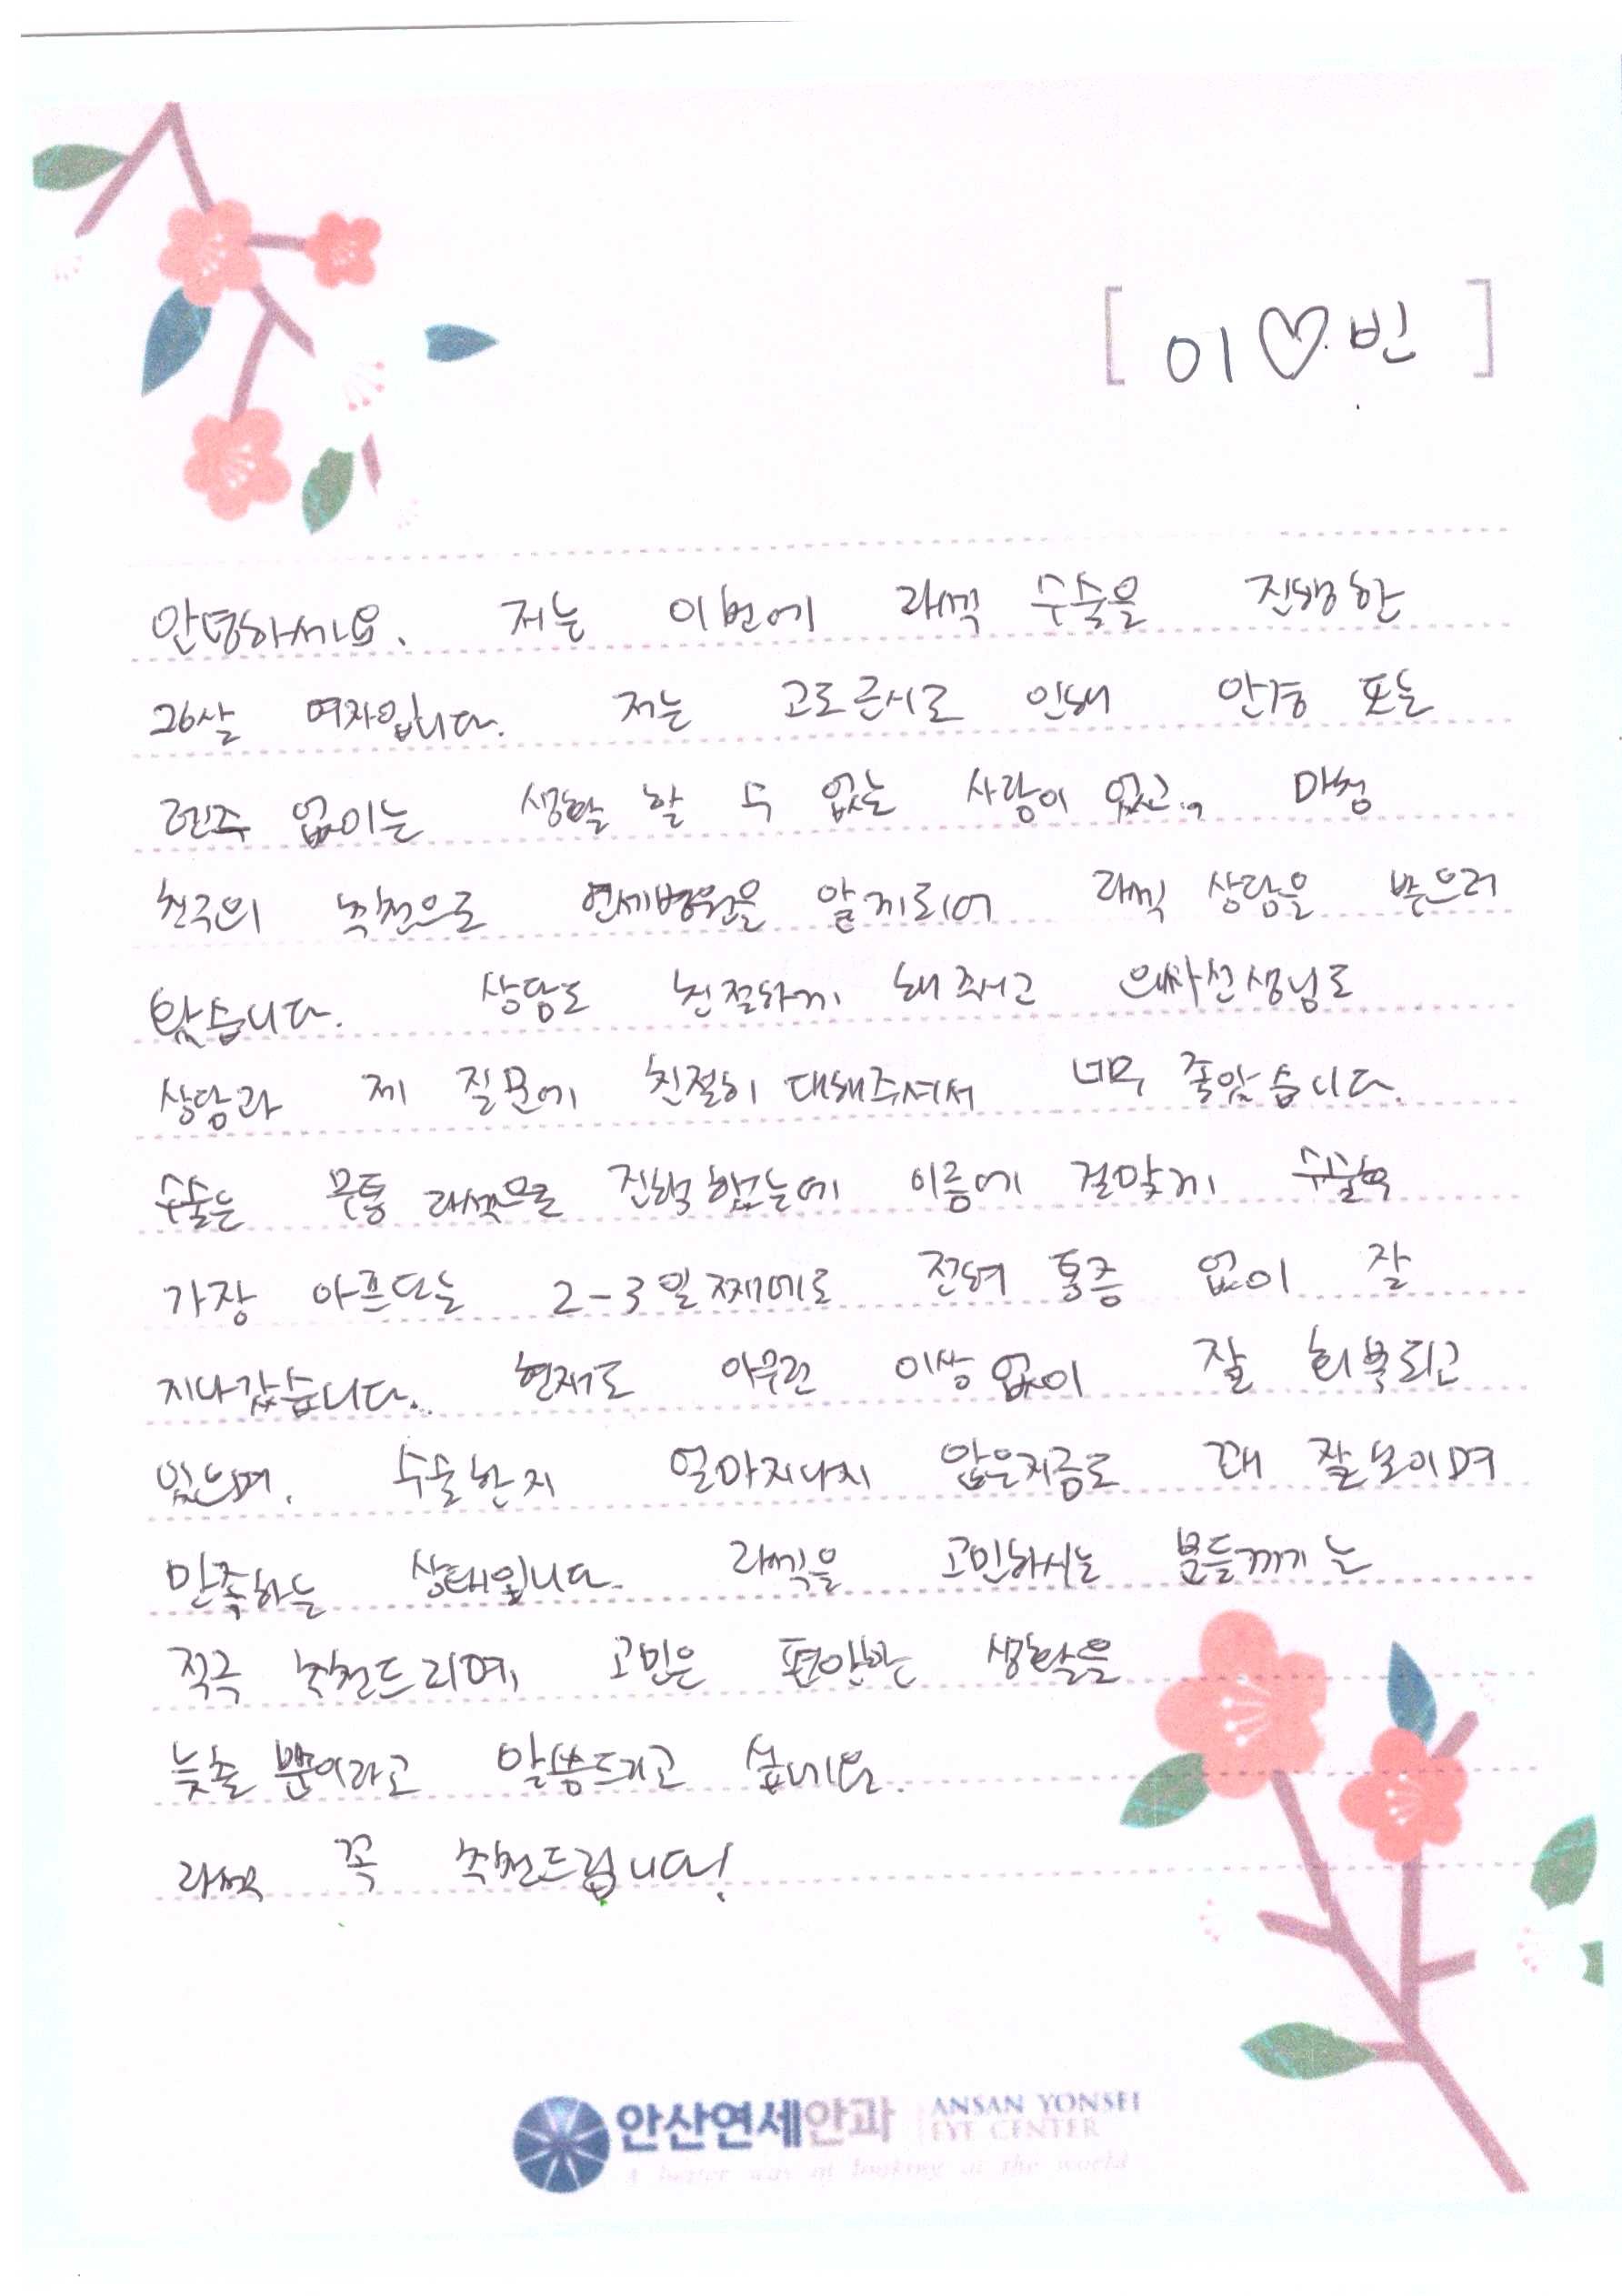 [ 이♡빈 ]
안녕하세요. 저는 이번에 라섹 수술을 진행한
26살 여자입니다. 저는 고도근시로 인해 안경 또는
렌즈 없이는 생활 할 수 없는 사람이 었고., 마침
친구의 추천으로 연세병원을 알게되어 라섹 상담을 받으러
왔습니다. 상담도 친절하게 해 주시고 의사선생님도
상담과 제 질문에 친절히 대해주셔서 너무 좋았습니다.
수술은 무통 라섹으로 진행했는데 이름에 걸맞게 수술후
가장 아프다는 2-3일째에도 전혀 통증 없이 잘
지나갔습니다. 현재도 아무런 이상없이 잘 회복되고
있으며, 수술한지 얼마지나지 않은지금도 꽤 잘보이며
만족하는 상태입니다. 라섹을 고민하시는 분들께는
적극 추천드리며, 고민은 편안한 생활을
늦출 뿐이라고 말씀드리고 싶네요.
라섹 꼭 추천드립니다!
안산연세안과 ANSAN YONSEI
EYE CENTER
A better way of looking at the world